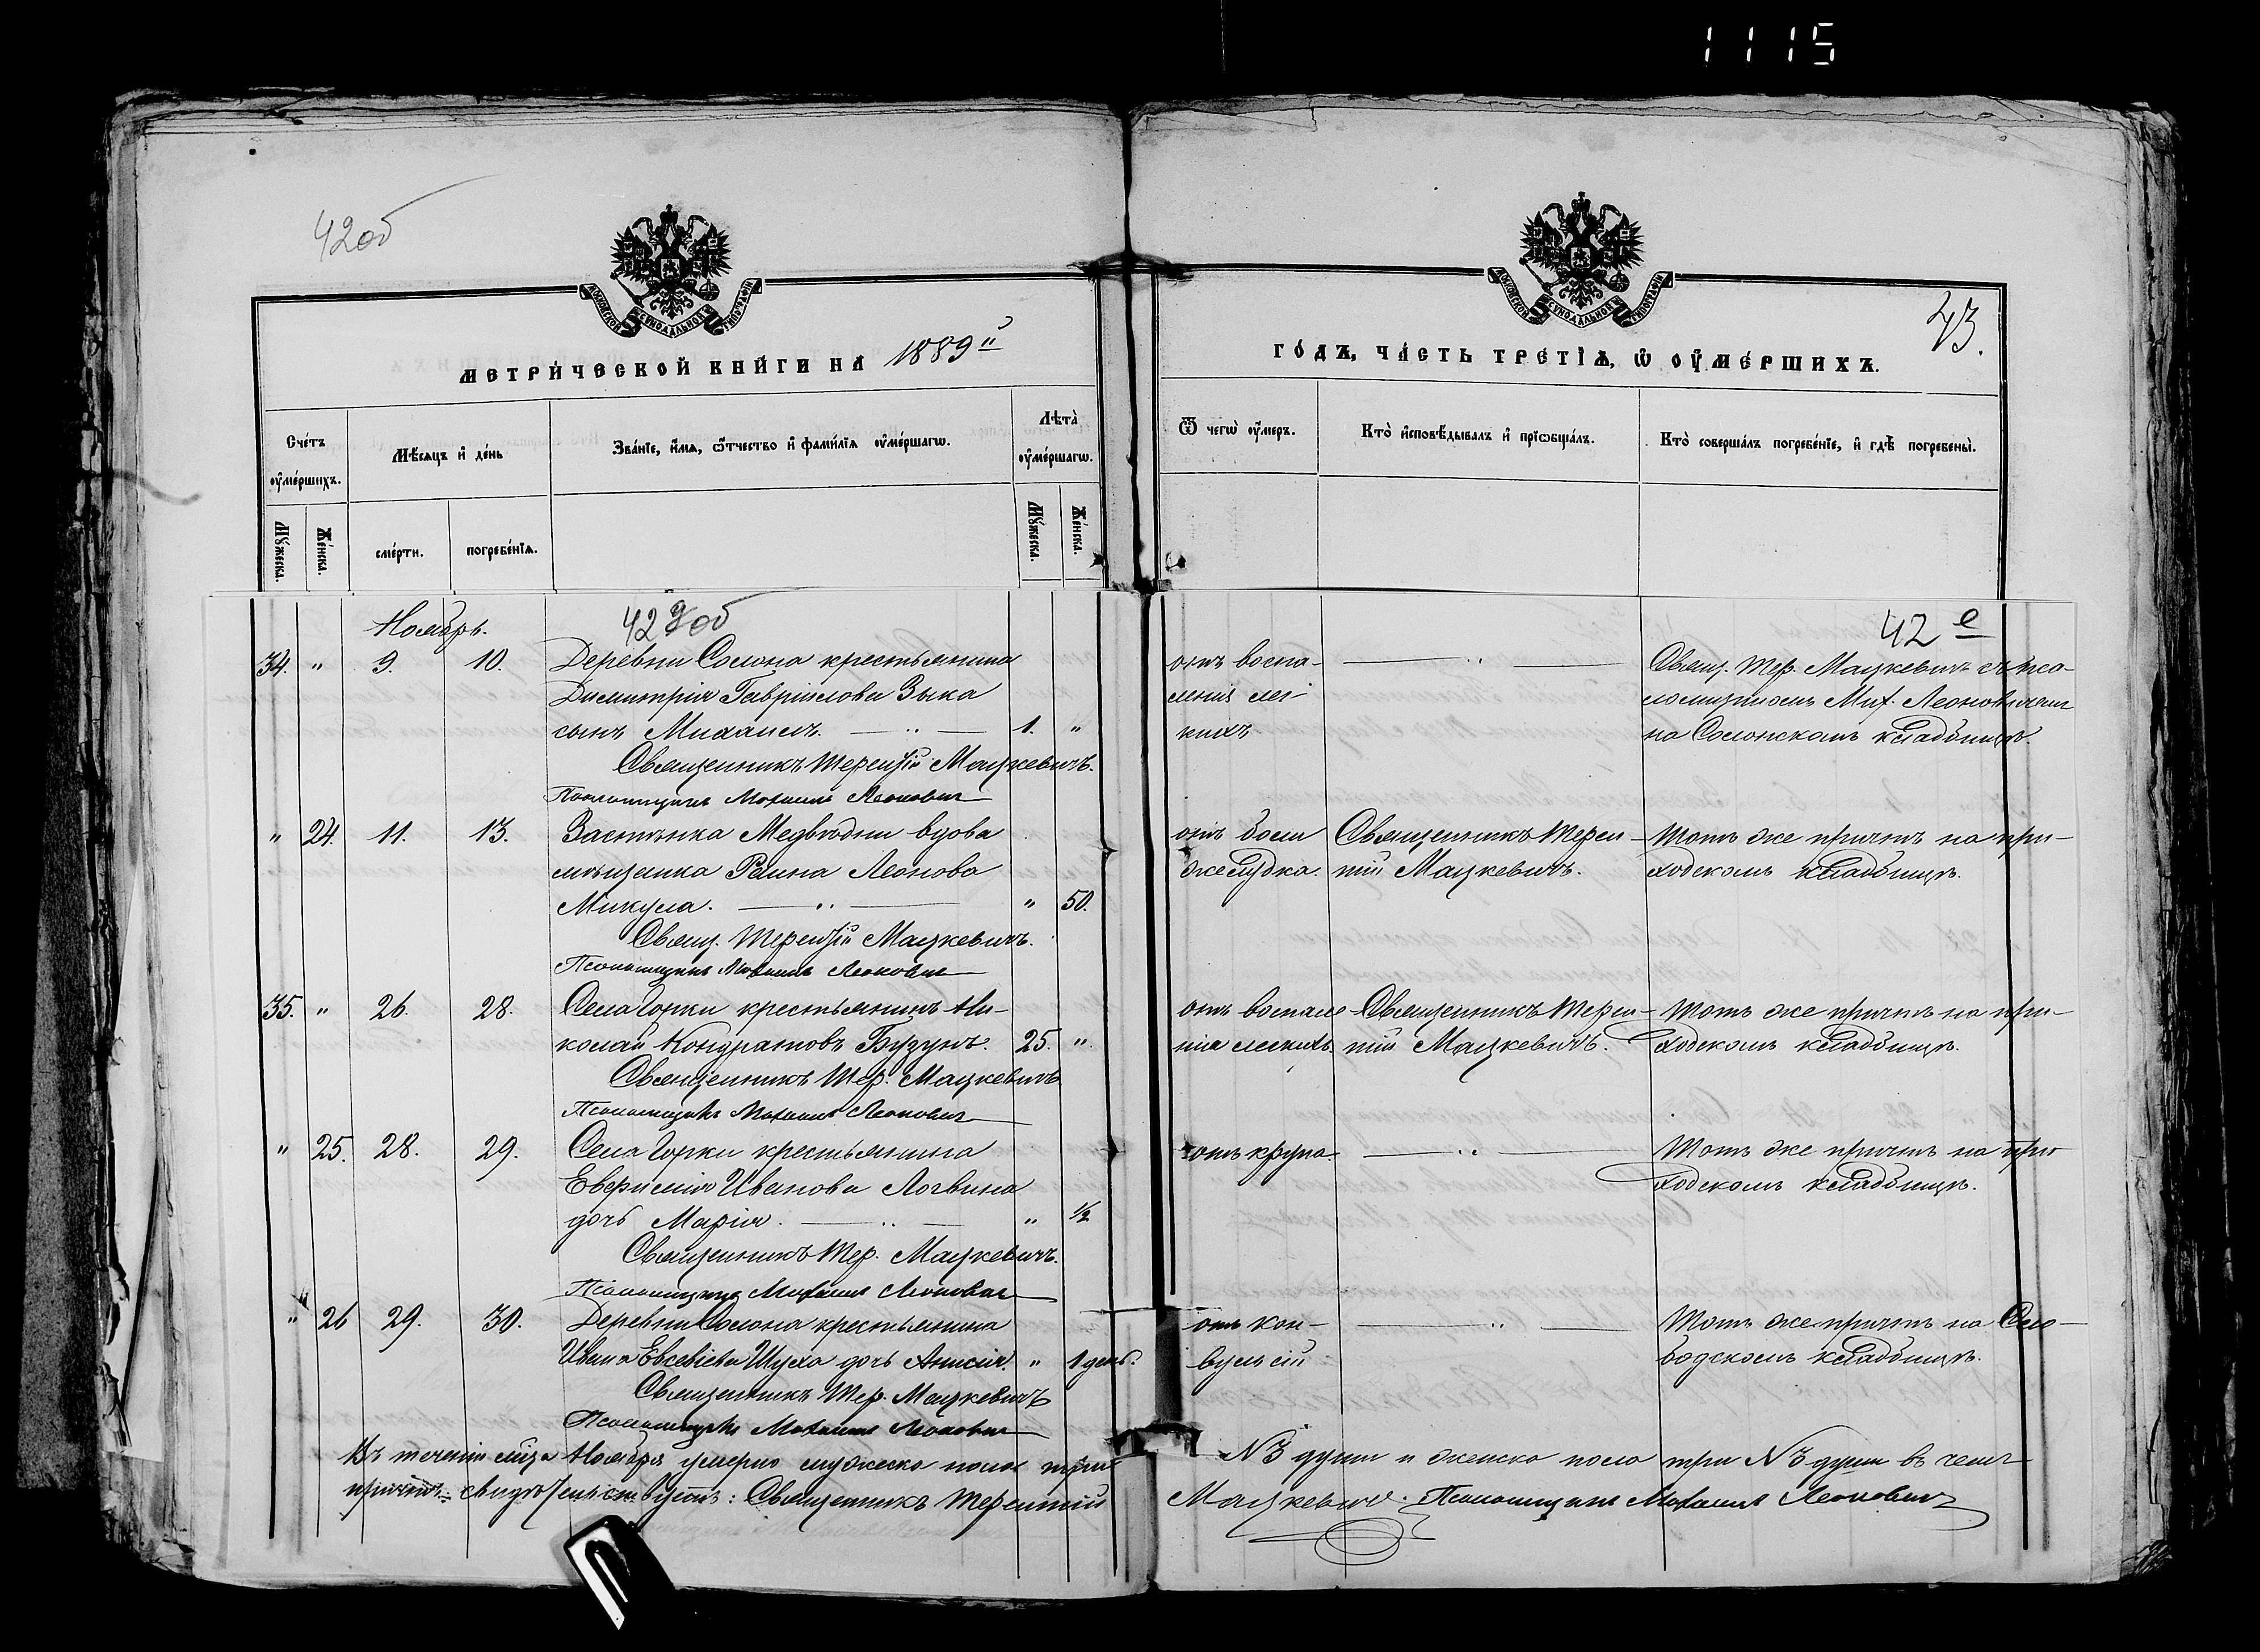 1115
42об
МЕТРИЧЕСКОЙ КНИГИ НА 1889й
ГОДЪ, ЧАСТЬ ТРЕТІѦ, Ѡ ОУМЕРШИХЪ.
43.
Счетъ оумершихъ.
Мѣсяцъ и день
Званіе, имя, ѿчество и фамилія оумершагѡ.
Лѣта оумершагѡ.
Мужеска.
Женска.
смерти.
погребенїѧ.
Мужеска.
Женска.
Ѿ чегѡ оумеръ.
Кто исповѣдывалъ и пріѡбщалъ.
Кто совершалъ погребеніе, и гдѣ погребены.
Ноябрь.
42 д об
42 е
34. " 9. 10. Деревни Солона крестьянина
Димитрія Гавріилова Зыка
сынъ Михаилъ. — " — 1. "
Священникъ Терентій Мацкевичъ.
Псаломщикъ Михаилъ Леонович
отъ воспа-
ленія лег-
кихъ
— " —
Свящ. Тер. Мацкевичъ съ пса-
ломщикомъ Мих. Леоновичем
на Солонскомъ кладбищѣ.
" 24. 11. 13. Застѣнка Медвѣдни вдова
мѣщанка Леонова
Микула. — " — " 50.
Свящ. Терентій Мацкевичъ.
Псаломщикъ Михаилъ Леонович
отъ боли
желудка.
Священникъ Терен-
тій Мацкевичъ.
Тотъ же причтъ на при-
ходскомъ кладбищѣ.
35. " 26. 28. Села Горки крестьянинъ Ни-
колай Кондратовъ Бузунъ. 25. "
Священникъ Тер. Мацкевичъ
Псаломщикъ Михаилъ Леонович
отъ воспале-
нія легкихъ.
Священникъ Терен-
тій Мацкевичъ.
Тотъ же причтъ на при-
ходскомъ кладбищѣ.
" 25. 28. 29. Села Горки крестьянина
Иванова Логвина
дочь Марія. — " — " 1/2
Священникъ Тер. Мацкевичъ.
Псаломщикъ Михаилъ Леонович
отъ крупа.
— " —
Тотъ же причтъ на при
ходскомъ кладбищѣ.
" 26 29. 30. Деревни Солона крестьянина
Ивана Евсевіева дочь Анисія. " 1 день.
Священникъ Тер. Мацкевичъ
Псаломщикъ Михаилъ Леонович
отъ кон-
вульсій
— " —
Тотъ же причтъ на Сло-
бодскомъ кладбищѣ.
Въ теченіи мѣца Ноября умерло мужеска пола три N3 души и женска пола три N3 души в чем
причтъ свидѣтельствуетъ: Священникъ Терентій Мацкевич. Псаломщикъ Михаилъ Леонович